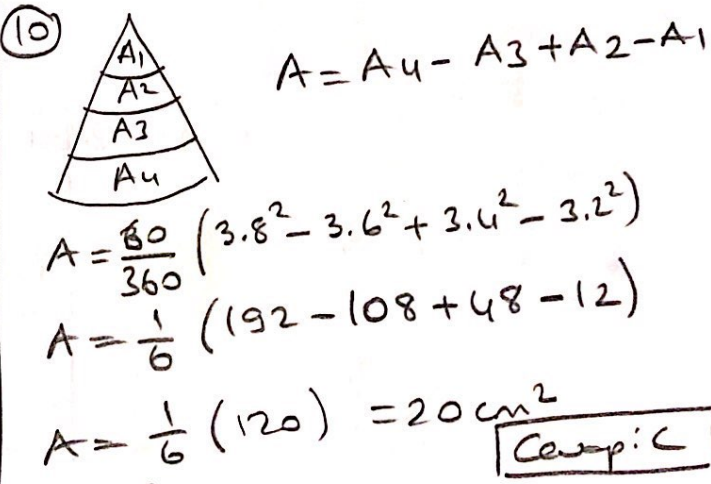 10
A1
A2
A3
A4
A = A4 - A3 + A2 - A1
A = 60/360 (3.8² - 3.6² + 3.4² - 3.2²)
A = 1/6 (192 - 108 + 48 - 12)
A = 1/6 (120) = 20 cm²
Cevap: C